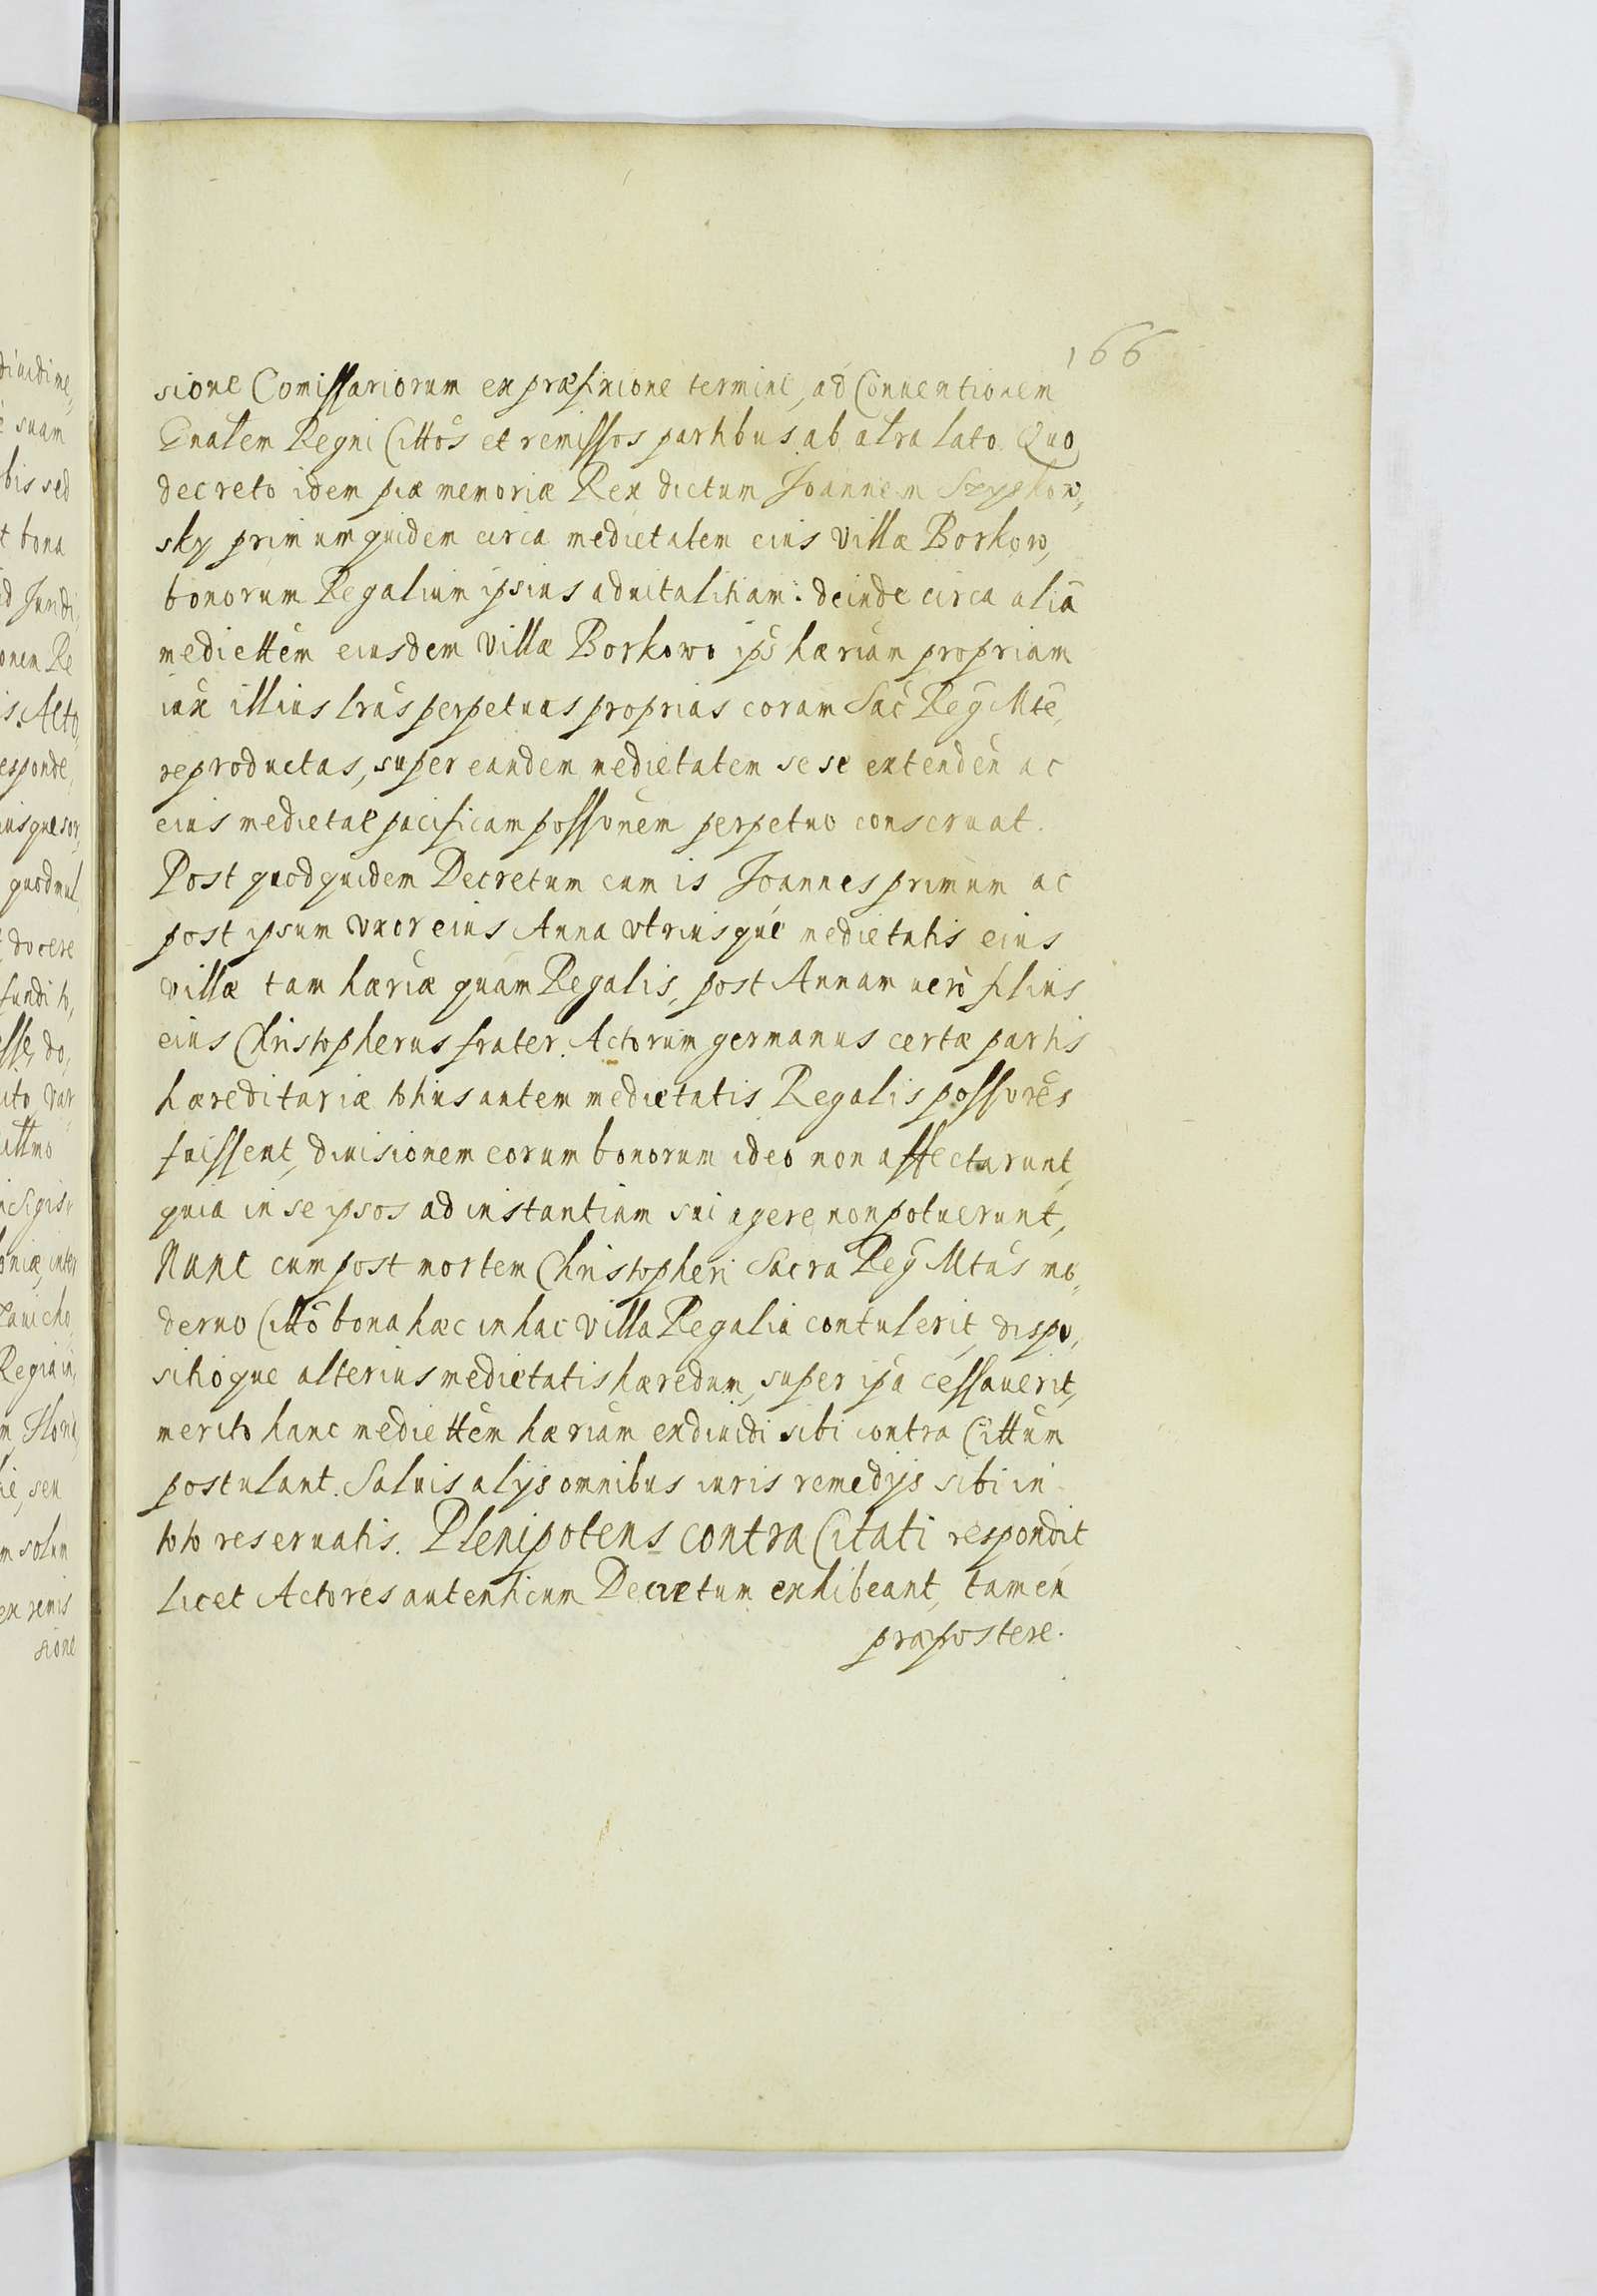 166
sione Comissariorum ex præfixione termini, ad Conventionem
Gnalem Regni Cittos et remissos partibus ab altra lato. Quo
decreto idem piæ memoriæ Rex dictum Joannem
sky primum quidem circa medietatem eius villæ Borkow,
bonorum Regalium ipsius aduitalitiam: deinde circa aliã
mediettem eiusdem villæ Borkowo ips hæriam propriam
iux illius lras perpetuas proprias coram Sac Reg Mte,
reproductas, super eandem medietatem se se extenden ac
eius medietat pacificam possonem perpetuo conseruat.
Post quod quidem Decretum cum is Joannes primum ac
post ipsum vxor eius Anna vtriusque medietatis eius
villæ tam hæriæ quam Regalis, post Annam uero filius
eius Christopherus frater Actorum germanus certæ partis
hæreditariæ totius autem medietatis Regalis possores
fuissent, diuisionem eorum bonorum ideo non affectarunt,
quia in se ipsos ad instantiam sui agere non potuerunt,
Nunc cum post mortem Christopheri Sacra Reg Mtas mo,
derno Citto bona hæc in hac villa Regalia contulerit, dispo,
sitioque alterius medietatis hæredum, super ipa cessauerit,
merito hanc mediettem hæriam exdiuidi sibi contra Cittum
postulant. Saluis alijs omnibus iuris remedijs sibi in
toto reseruatis. Plenipotens contra Citati respondit
Licet Actores autenticum Decretum exhibeant, tamen
præpostere.
diuidi me,
suam
bis sed
t bona
d Juridi,
onem Re
is. Acto,
esponde,
iusque sor,
quod nul,
docere
fundi to,
esse, do,
ito var
ittmo
Sigis,,
oniæ, inter
Regia in,
seu
m solum
ex remis
sione